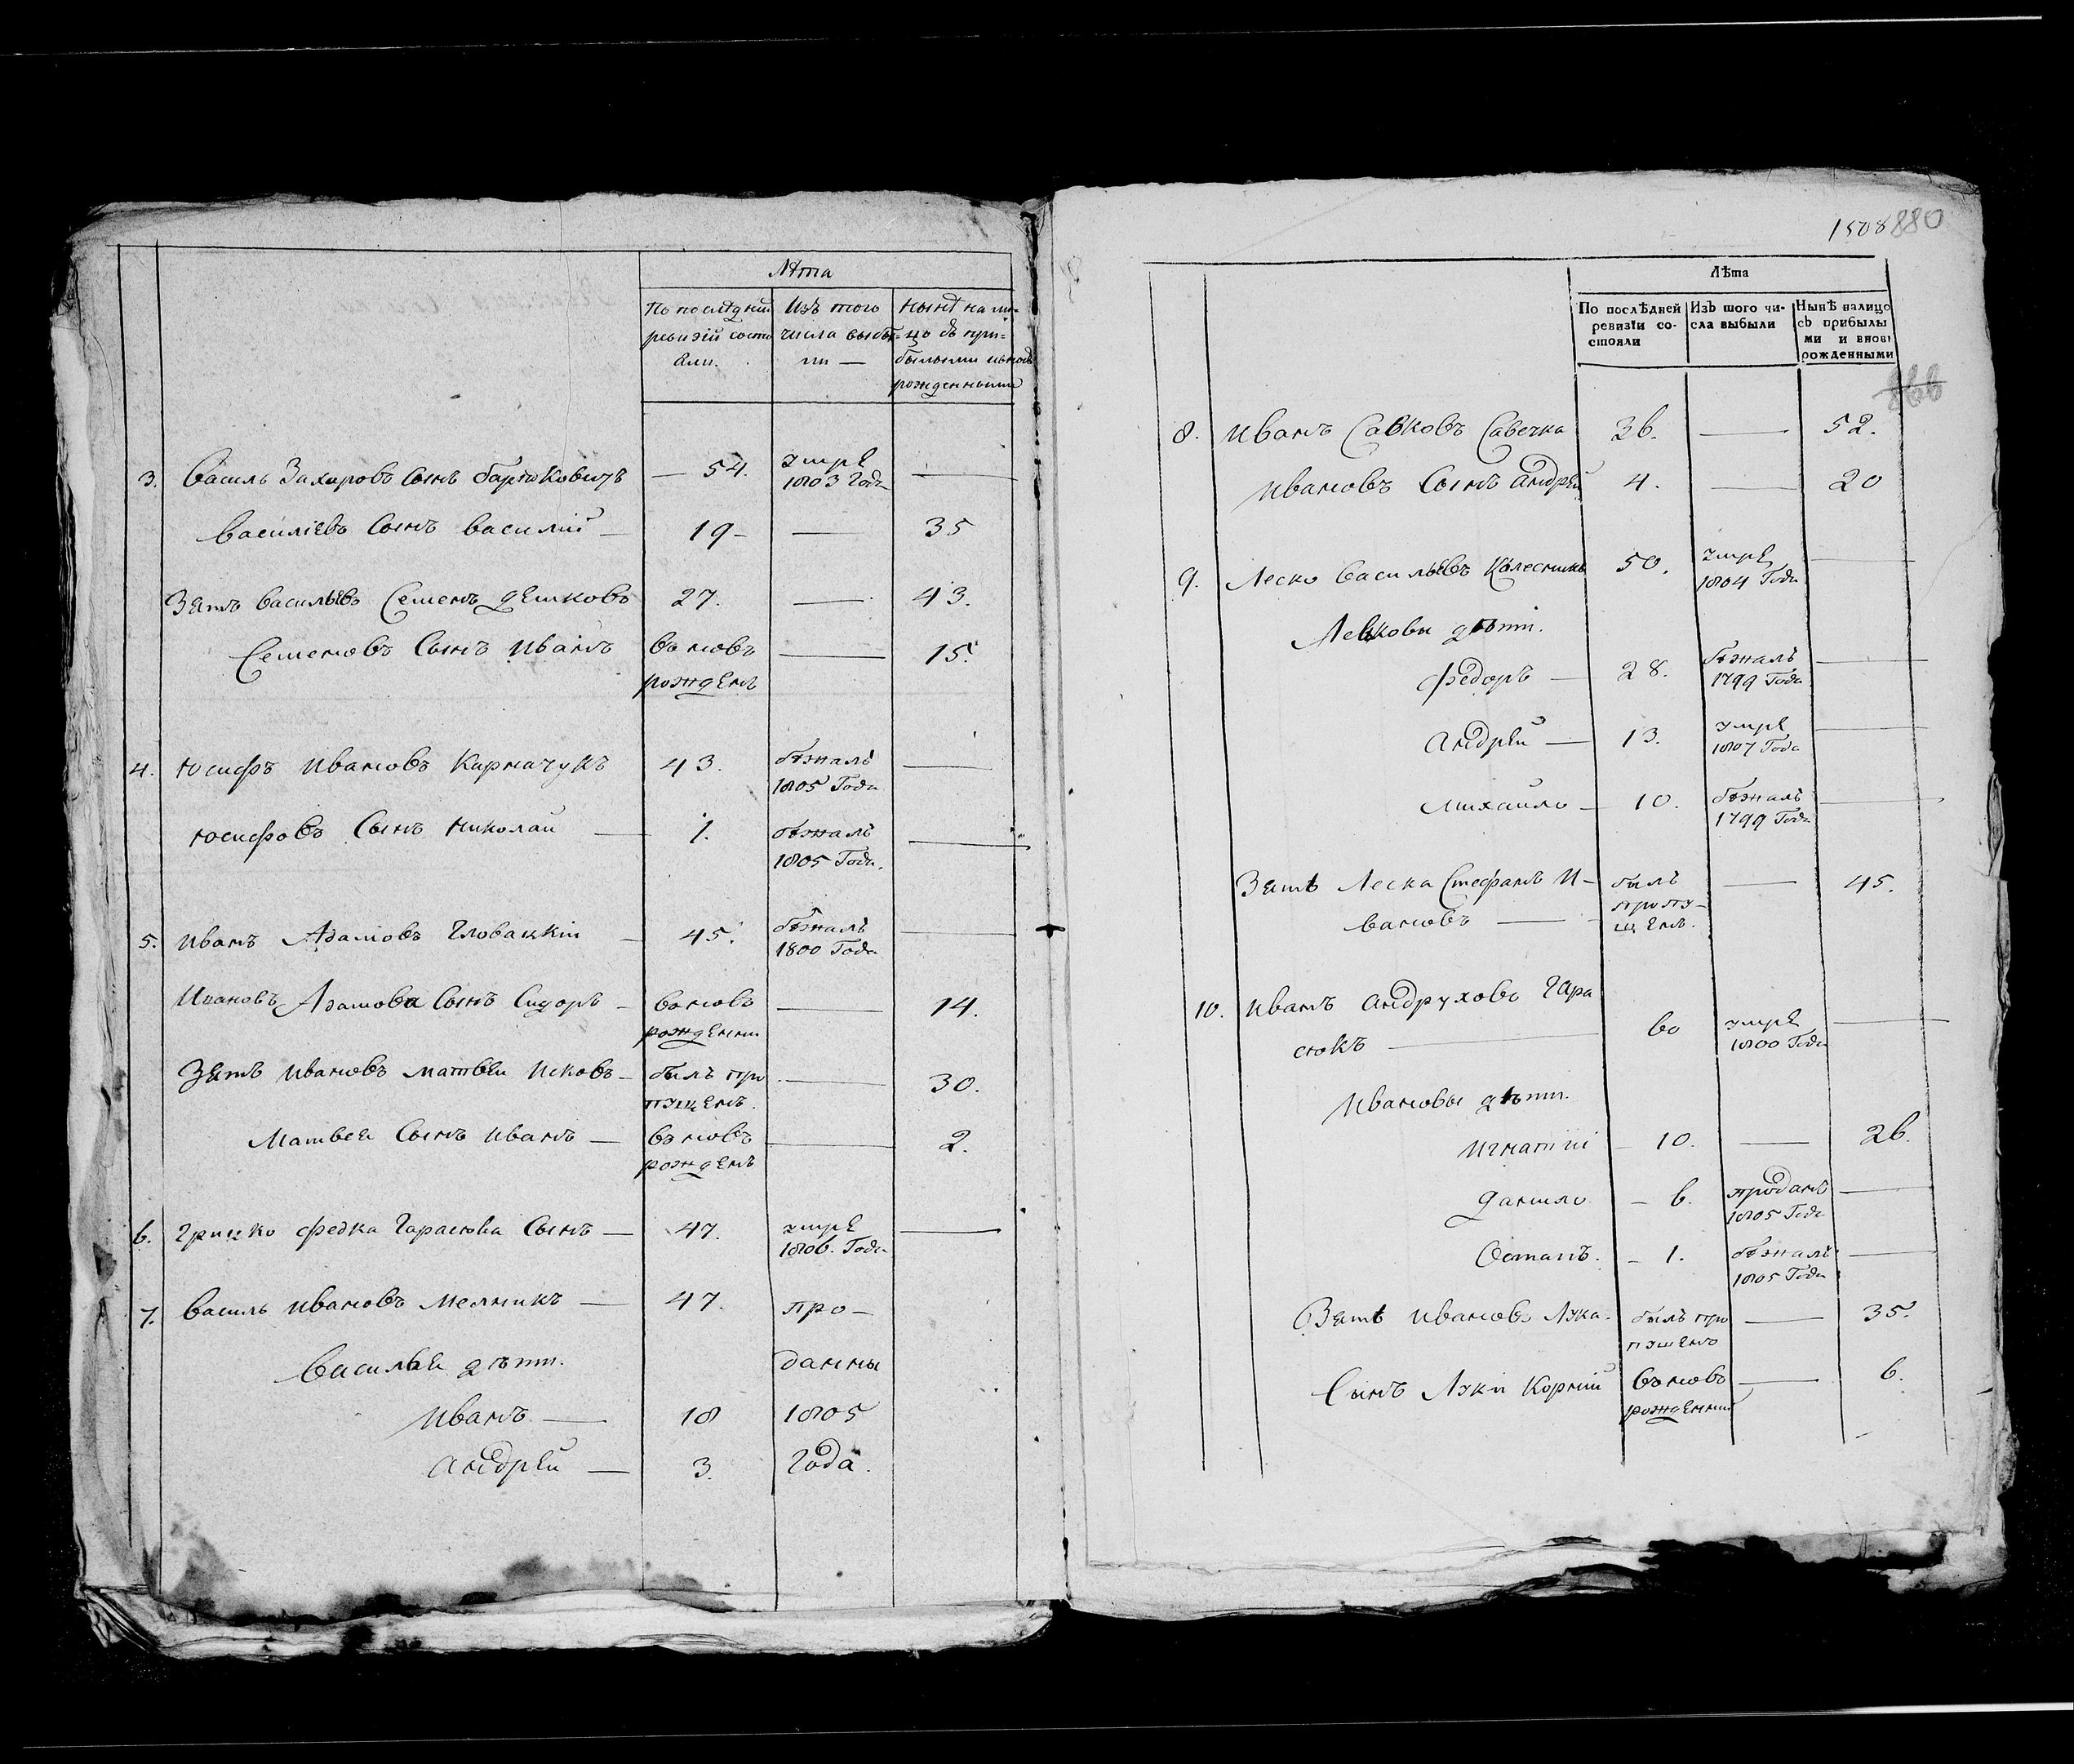 Лѣта
По последней ревизiи состояли.
Изъ того числа выбыли —
Нынѣ на лицо съ прибылыми и вновь рожденными
3. Василь Захаровъ Сынъ Бартковичъ — 54. умре 1803 Года —
Василiевъ Сынъ Василий — 19 — — 35
Зять Васильевъ Семенъ Дешковъ 27. — 43.
Семеновъ Сынъ Иванъ вновь рожденъ — 15.
4. Юсифъ Ивановъ Кармачукъ 43. бѣжалъ 1805 Года —
Юсифовъ Сынъ Николай — 1. бѣжалъ 1805 Года. —
5. Иванъ Адамовъ Гловацкiй — 45. бѣжалъ 1800 Года —
Ивановъ Адамова Сынъ Сидоръ — вновь рожденны — 14.
Зять Ивановъ Матвеи Исковъ — былъ пропущенъ. — 30.
Матвея Сынъ Иванъ — вновь рожденъ — 2.
6. Грицко Федка Тарасюва Сынъ — 47. умре 1806. Года —
7. Василь Ивановъ Мелникъ — 47. про-
Василья дѣти. данны
Иванъ — 18 1805
Андрей — 3. Года.
1508 880
Лѣта
По послѣдней ревизiи состояли
Изъ того числа выбыли
Нынѣ налицо съ прибылыми и вновь рожденными
866
8. Иванъ Савковъ Савечка 36. — 52.
Ивановъ Сынъ Андрей 4. — 20
9. Леско Васильевъ Колесникъ 50. умре 1804 Года —
Левковы дѣти.
Федоръ — 28. бѣжалъ 1799 Года —
Андрей — 13. умре 1807 Года —
Михайло — 10. бѣжалъ 1799 Года —
Зять Леска Стефанъ И- былъ пропущенъ. — 45.
вановъ —
10. Иванъ Андруховъ Гара
сюкъ — 60 умре 1800 Года —
Ивановы дѣти.
Игнатiй — 10. — 26.
Данило — 6. проданъ 1805 Года —
Остапъ. — 1. бѣжалъ 1805 Года —
Зять Ивановъ Лука. былъ пропущенъ — 35.
Сынъ Луки Корнiй вновь рожденный — 6.